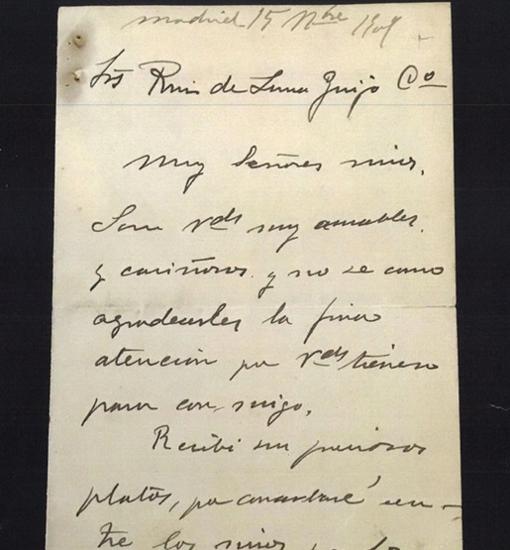 Madrid 15 Nbre 1909
Srs Ruiz de Luna Guijo Cº
Muy Señores mios,
Son Vds muy amables
y cariñosos y no se como
agradecerles la fina
atencion que Vds tienen
para conmigo,
Recibi sus preciosos
platos, que guardaré en-
tre los mios